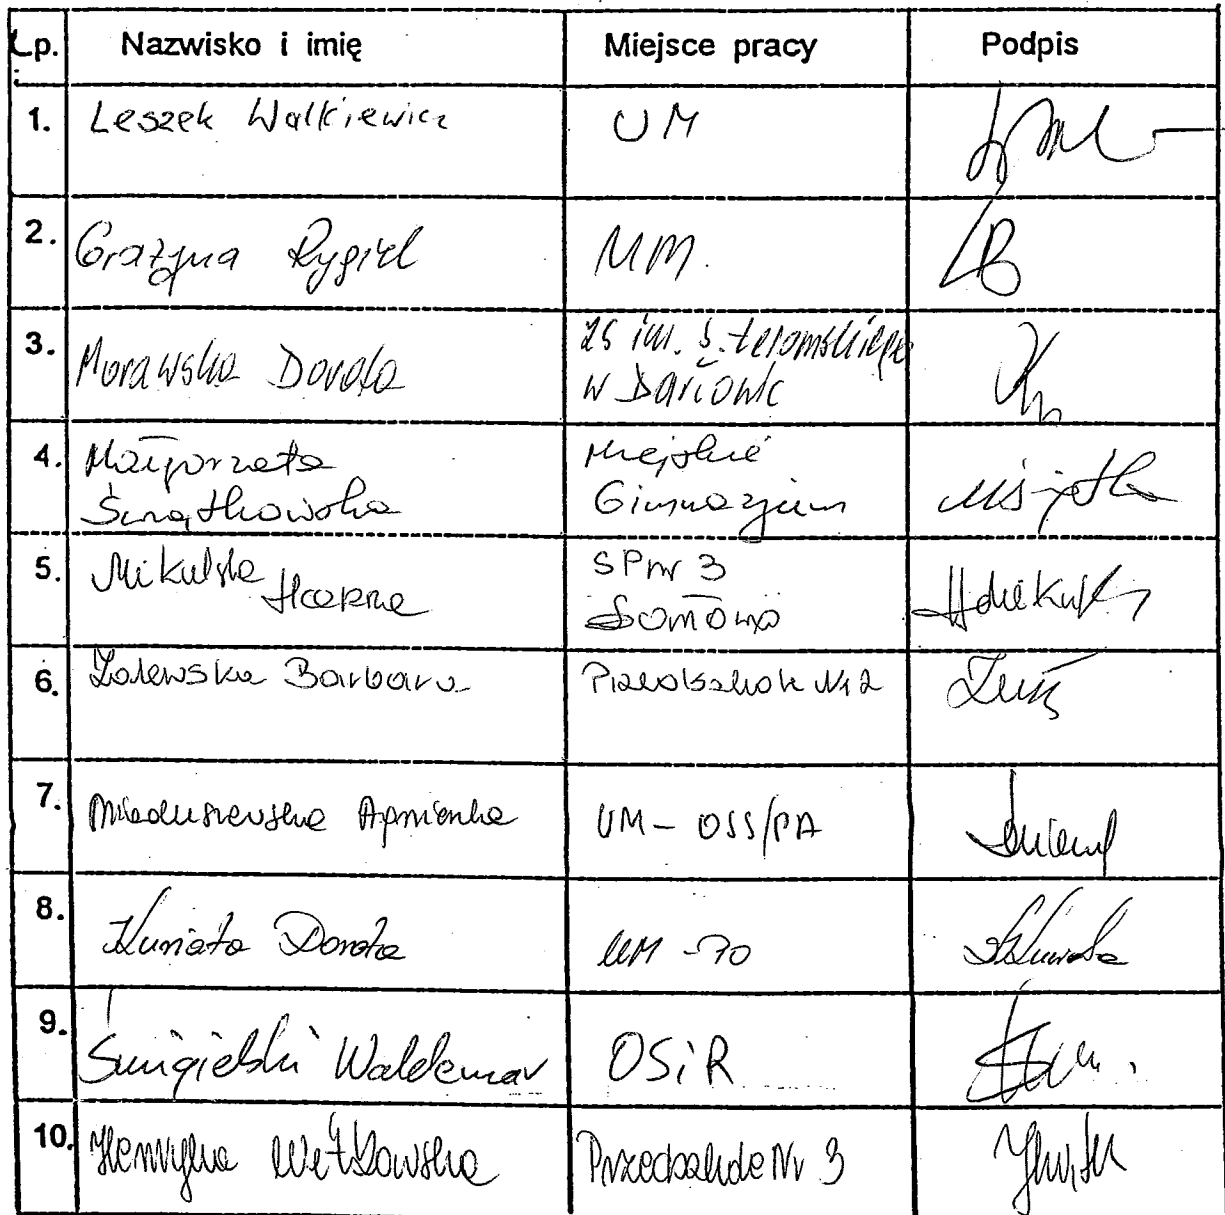 Lp. Nazwisko i imię Miejsce pracy Podpis
1. Leszek Walkiewicz UM
2. Grażyna Rygiel UM.
3. Morawska Dorota ZS im. S. Żeromskiego
w Darłowie
4. Małgorzata Miejskie
Świątkowska Gimnazjum
5. Mikulska SP nr 3
6. Zalewska Barbara Przedszkole Nr 2
7. Mieduszewska Agnieszka UM - OSS/PA
8. Kuriata Dorota UM -
9. Śmigielski Waldemar OSiR
10. Henryka Przedszkole Nr 3